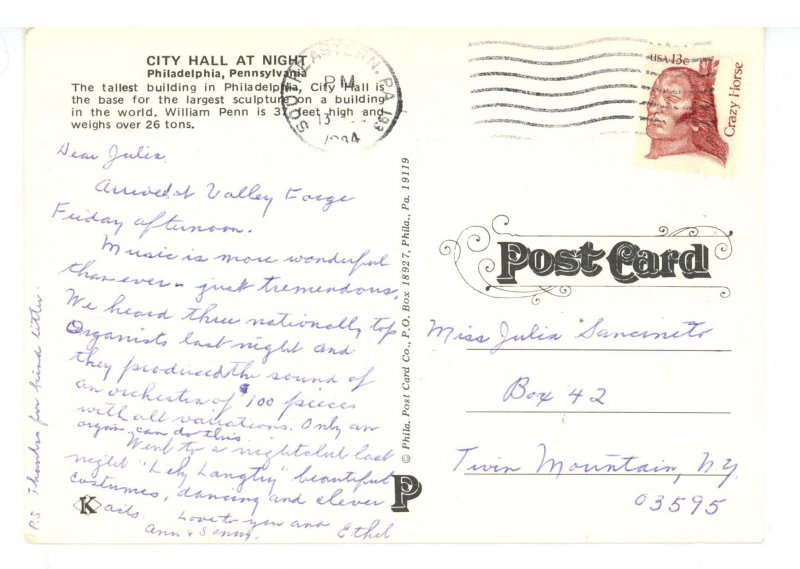 CITY HALL AT NIGHT
Philadelphia, Pennsylvania
The tallest building in Philadelphia, City Hall is
the base for the largest sculpture on a building
in the world. William Penn is 37 feet high and
weighs over 26 tons.
SOUTHEASTERN, PA 193
PM
1984
USA 13c
Crazy Horse
Dear Julia,
Arrived at Valley Forge
Friday afternoon.
Music is more wonderful
than ever - just tremendous.
We heard three nationally top
Organists last night and
they produced the sound of
an orchestra of 100 pieces
with all variations. Only an
organ can do this.
Went to a nightclub last
night "Lily Langtry" beautiful
costumes, dancing and clever
acts. Love to you and
Ann & Sonny. Ethel
P.S. Thanks for kind letter.
K
P
© Phila. Post Card Co., P.O. Box 18927, Phila., Pa. 19119
Post Card
Miss Julia Sancineto
Box 42
Twin Mountain, N.Y.
03595